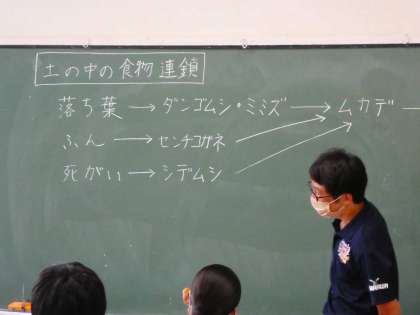 土の中の食物連鎖
落ち葉→ダンゴムシ・ミミズ→ムカデ→
ふん→センチコガネ
死がい→シデムシ